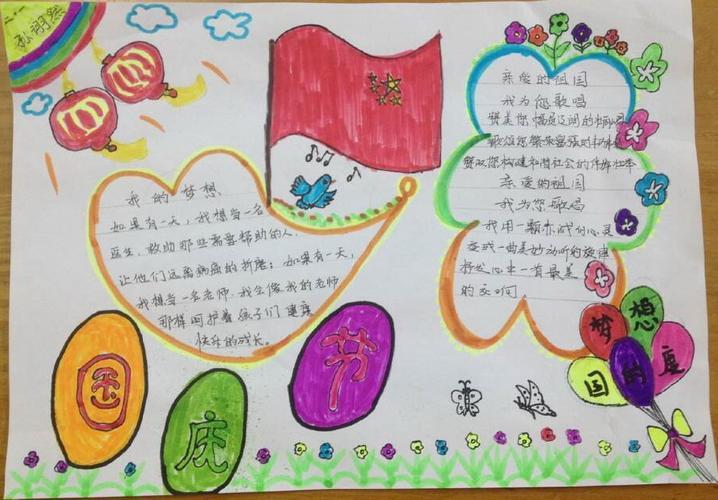 我的梦想
如果有一天,我想当一名
医生,救助那些需要帮助的人,
让他们远离病痛的折磨;如果有一天,
我想当一名老师,我会像我的老师
那样呵护着孩子们健康
快乐的成长。
亲爱的祖国
我为您歌唱
赞美您幅员辽阔的
歌颂您繁荣富强的
赞叹您构建和谐社会的
亲爱的祖国
我为您歌唱
我用一颗赤诚的心灵
一曲美妙动听的旋律
抒发心中一首最美
的交响
梦想
国的度
国庆节